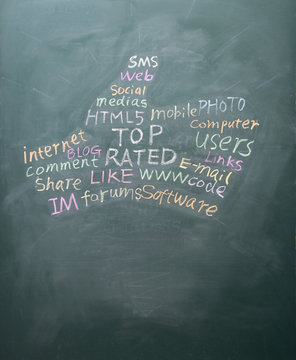 SMS
Web
Social
medias
HTML5 mobile PHOTO
TOP Computer
internet BLOG RATED users
Comment E-mail Links
Share LIKE WWW code
IM forums Software